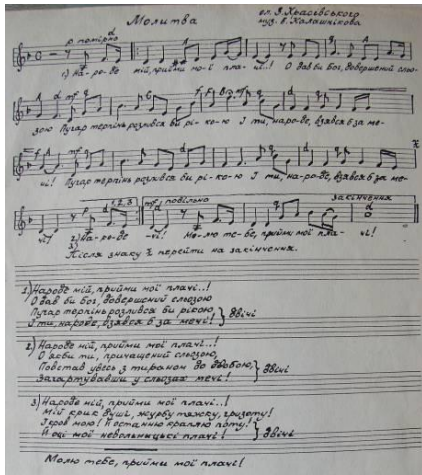 Молитва
сл. З. Красівського
муз. В. Калашнікова
помірно
1) На-ро-де мій, прийми мо-ї пла-чі..! О дав би Бог, довершений сльо-
зою Пугар терпінь розлився би рі-ко-ю І ти, на-ро-де, взявся б за ме-
чі! Пугар терпінь розлився би рі-ко-ю І ти, на-ро-де, взявся б за ме-
1,2,3 повільно закінчення
чі! 2) На-ро-де -чі! Мо-лю те-бе, прийми мої пла-чі!
3)
Після знаку перейти на закінчення.
1) Народе мій, прийми мої плачі..!
О дав би Бог, довершений сльозою
Пугар терпінь розлився би рікою,
І ти, народе, взявся б за мечі! } двічі
2) Народе мій, прийми мої плачі..!
О якби ти, причащений сльозою,
Повстав увесь з тираном до двобою,
Загартувавши у сльозах мечі! } двічі
3) Народе мій, прийми мої плачі..!
Мій крик душі, журбу тяжку, гризоту!
І кров мою! И останню краплю поту!
И оці мої невольницькі плачі! } двічі
Молю тебе, прийми мої плачі!